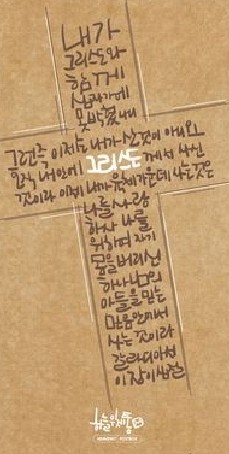 내가
그리스도와
함께
십자가에
못박혔나니
그런즉 이제는 내가 산 것이 아니요
오직 내 안에 그리스도께서 사신
것이라 이제 내가 육체 가운데 사는 것은
나를 사랑
하사 나를
위하여 자기
몸을 버리신
하나님의
아들을 믿는
믿음 안에서
사는 것이라
갈라디아서
이장이십절